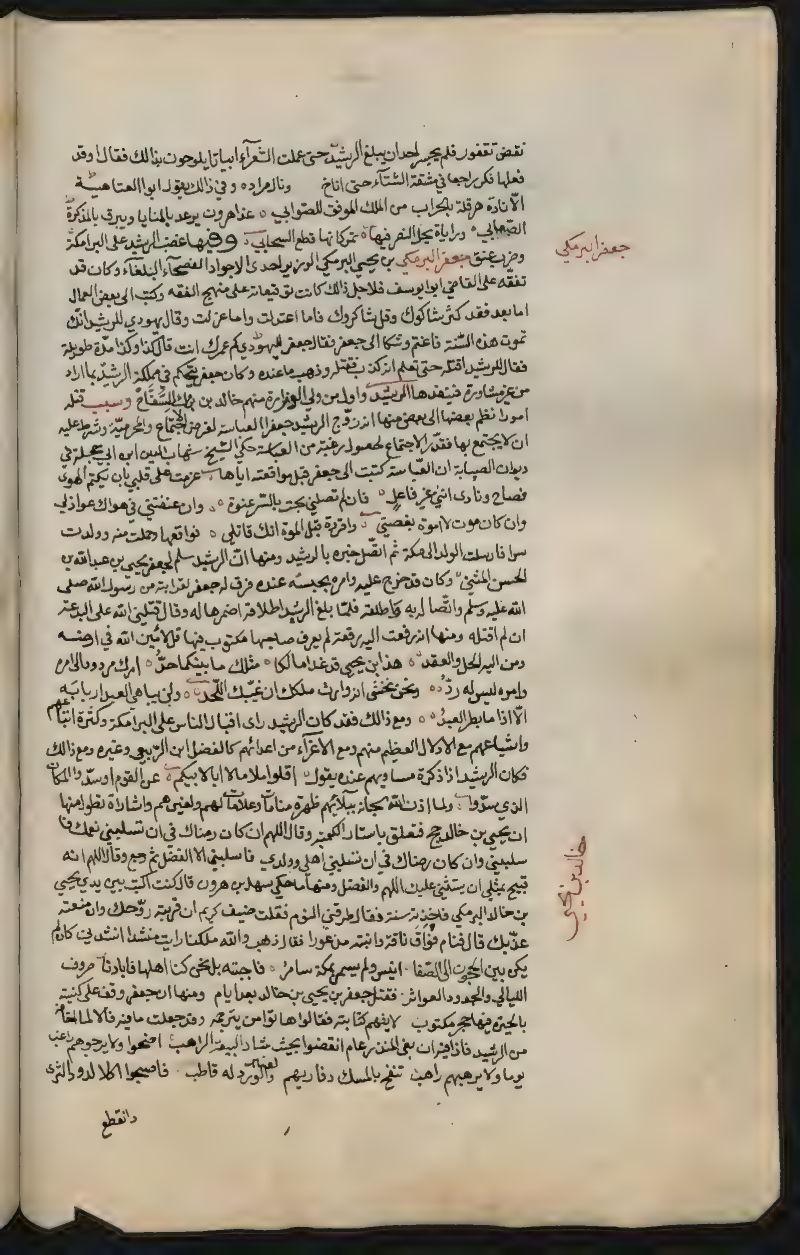 نقض نقفور فلم يجسر احد ان يبلغ الرشيد حتى عملت الشعرآء ابياتا يلوحون بذالك فقال اوقد
فعلها فكر راجعا في مشقة الشتآء حتى اناخ ونال مراده وفي ذالك يقول ابوا العتاهية
الا نادة هرقلة بالخراب من الملك الموفق للصوابي غدا هرون يرعد بالمنايا ويبرق بالمذكرة
الصهابي وراياة يحل النصر فيها تمر كانها قطع السحابي وفيها غضب الرشيد على البرامكة
وضرب عنق جعفر البرمكي بن يحيى البرمكي الوزير احدى الاجواد الفصحآء البلغآء وكان قد
تفقه على القاضي ابو ايوسف فلاجل ذالك كانت توقيعاته على منهج الفقه وكتب الى بعض العمال
اما بعد فقد كثر شاكوك وقل شاكروك فاما اعتدلت واما عزلت وقال يهودي للرشيد انك
تموت هذه السنة فاغتم وشكا الى جعفر فقال جعفر لليهودي كم عمرك انت قال كذا وكذا مدة طويلة
فقال للرشيد اقتله حتى تعلم انه كذب فقتله وذهب ما عنده وكان جعفر يتحكم في مملكة الرشيد بما اراد
من غير مشاورة فينفذها الرشيد واول من ولي الوزارة منهم خالد بن برمك للسفاح وسبب قتله
امورا نظم بعضها الى بعض منها انه زوج الرشيد جعفرا العباسة لغرض الاجتماع والمحرمية وشرط عليه
ان لا يجتمع بها فقدر الاجتماع لحصول رغبته من العباسة حكى الشيخ شهاب الدين ابن ابي حجلة في
ديوان الصبابة ان العباسة كتبت الى جعفر قبل مواقعته اياها عزمت على قلبي بان يكتم الهوى
فصاح ونادى انني غير فاعل فان لم تصلني بحت بالسر عنوة وان عنفتني في هواك عواذلي
وان كان موت لا موة بغصتي واقررة قبل الموة انك قاتلي فواقعها وحملت منه وولدت
سرا فارسلت الولد الى مكة ثم اتصل خبره بالرشيد ومنها ان الرشيد سلم لجعفر يحيى بن عبد الله بن
الحسن المثنى وكان قد خرج عليه وامره بحبسه عنده فرق له جعفر لقرابته من رسول الله صلى
الله عليه وسلم واتصاله به فاطلقه فلما بلغ الرشيد اطلاقه اضمرها له وقال قتلني الله على البدعة
ان لم اقتله ومنها انه رفعت اليه رقعة لم يعرف صاحبها مكتوب فيها قل لامين الله في ارضه
ومن اليه الحل والعقد هذا ابن يحيى قد غدا مالكا مثلك ما بينكما حد امرك مردود الى امره
وامره ليس له رد ونحن نخشى انه وارث ملكك ان غيبك اللحد ولن يباهي العبد اربابه
الا اذا ما بطر العبد ومع ذالك فقد كان الرشيد راى اقبال الناس على البرامكة وكثرة اتباعهم
واشياعهم مع الادلال العظيم منهم ومع الاغرآء من اعدائهم كالفضل ابن الربيع وغيره ومع ذالك
فكان الرشيد اذا ذكرة مساويهم عنده يقول اقلوا ملاما لا ابا لابيكم عن القوم او سدوا المكان
الذي سدوا ولما اذن الله سبحانه ببلآئهم ظهرة منامات وعلامات لهم ولغيرهم واشاراة نطوا منها
ان يحيى بن خالد حج فتعلق باستار الكعبة وقال اللهم ان كان رضاك في ان تسلبني نعمك فا
سلبني وان كان رضاك في ان تسلبني اهلي وولدي فاسلبني الا الفضل ثم رجع وقال اللهم انه
قبيح بمثلي ان يستثني عليك اللهم والفضل ومنها ما حكي سهل بن هرون قال كنت اكتب بين يدي يحيى
بن خالد البرمكي فاخذته سنة فقال طرقني النوم فقلت ضيف كريم ان قربته روحك وان منعته
عذبك قال فنام فواق ناقة وانتبه مذعورا فقال ذهب والله ملكنا رايت منشدا انشدني كان لم
يكن بين الحجون الى الصفا انيس ولم يسمر بمكة سامر فاجبته بلى نحن كنا اهلها فابادنا صروف
الليالي والجدود العواثر فقتل جعفر بن يحيى بن خالد بعد ايام ومنها ان جعفر وقف على كنيسة
بالحيرة فيها حجر مكتوب لا يفهم كتابته فقالوا هاتوا من يترجمه وقد جعلت ما فيه فالا لما اخافه
من الرشيد فاذا فيه ان بنى المنذر عام انقضوا بحيث شاد البيعة الراهب اضحوا ولا يرجوهم راغب
يوما ولا يرهبهم راهب تنفح بالمسك دفاريهم والعنبر الورد له قاطب فاصبحوا اكلا لدود الثرى
وانقطع
جعفر البرمكي
خالد بن يحيى